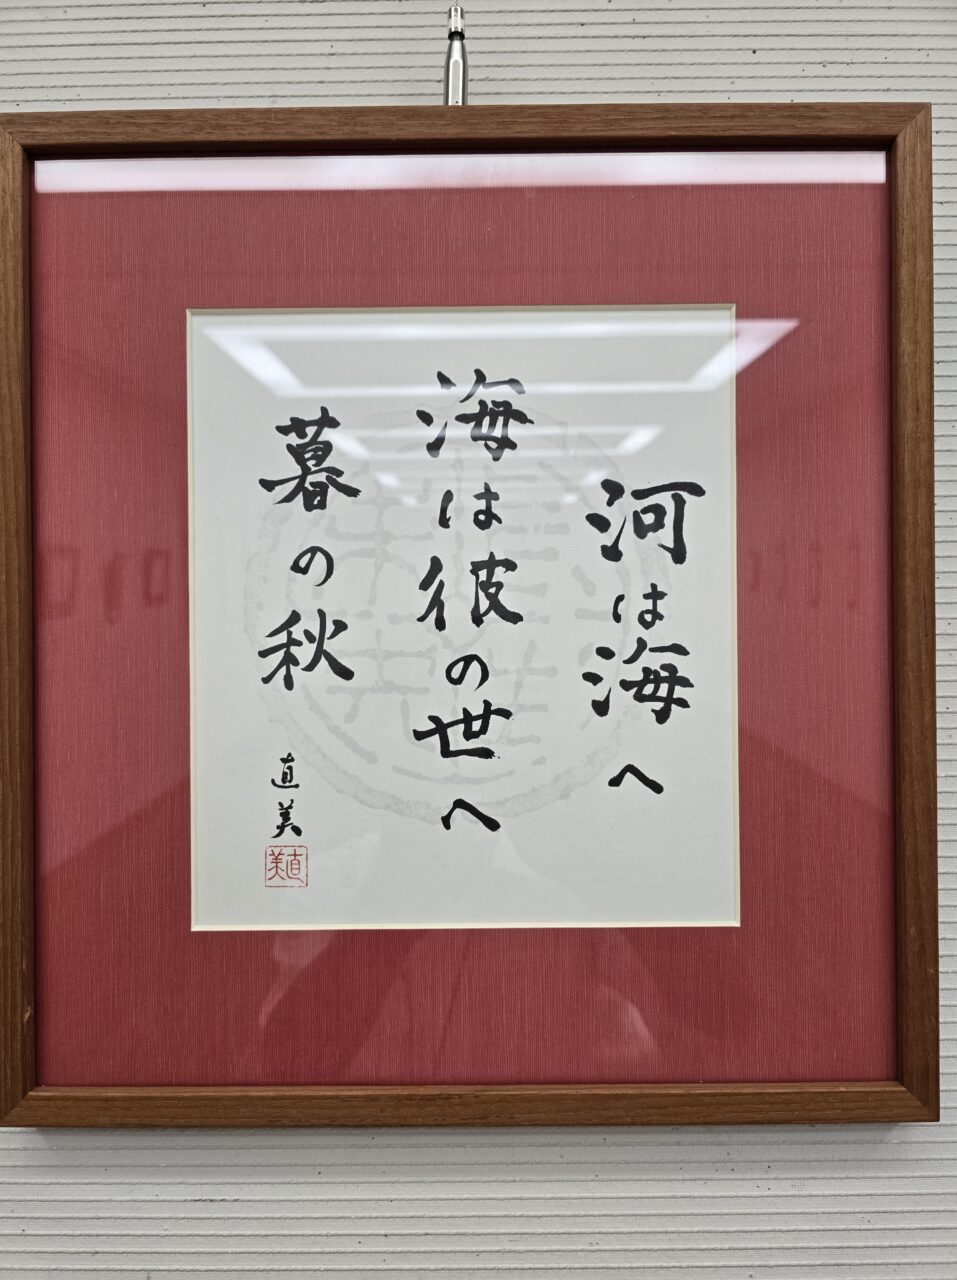 河は海へ
海は彼の世へ
暮の秋
直美
直美